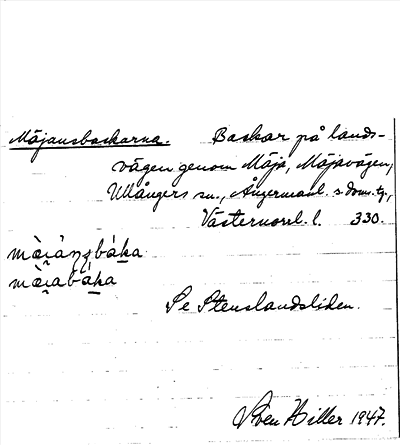 Mäjansbackarna. Backar på lands-
vägen genom Mäja, Mäjavägen,
Ullångers sn., Ångermanl. s. doms.,
Västernorrl. l. 330.
Se Stenslandsliden.
Sven Hiller 1947.